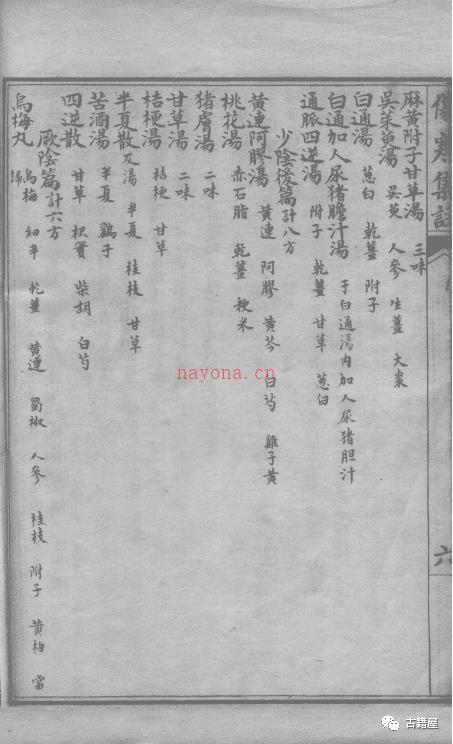 傷寒集註
六
麻黃附子甘草湯 三味
吳茱萸湯 吳茱 人參 生薑 大棗
白通湯 葱白 乾薑 附子
白通加人尿猪膽汁湯 于白通湯内加人尿猪胆汁
通脈四逆湯 附子 乾薑 甘草 葱白
少陰後篇計八方
黃連阿膠湯 黃連 阿膠 黃芩 白芍 雞子黃
桃花湯 赤石脂 乾薑 粳米
猪膚湯 二味
甘草湯 二味
桔梗湯 桔梗 甘草
半夏散及湯 半夏 桂枝 甘草
苦酒湯 半夏 鷄子
四逆散 甘草 枳實 柴胡 白芍
厥陰篇計六方
烏梅丸 烏梅 細辛 乾薑 黃連 蜀椒 人參 桂枝 附子 黃柏 當
歸
nayona.cn
古籍屋